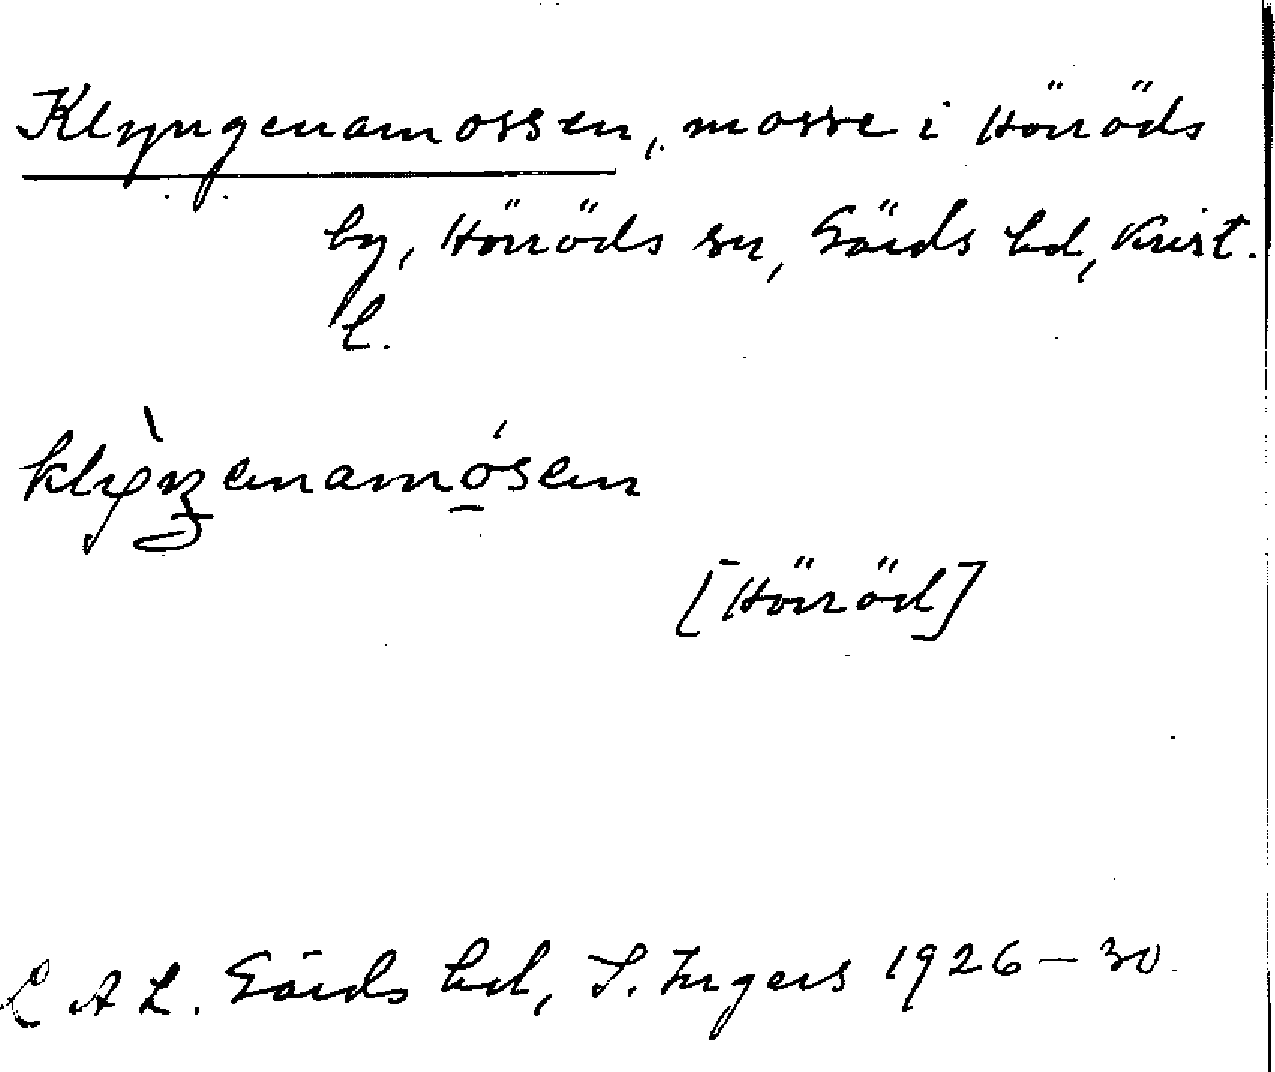 Klyngenamossen, mosse i Hörröds
by, Hörröds sn, Gärds hd, Krist.
l.
[Hörröd]
L A L. Gärds hd, I. Ingers 1926–30